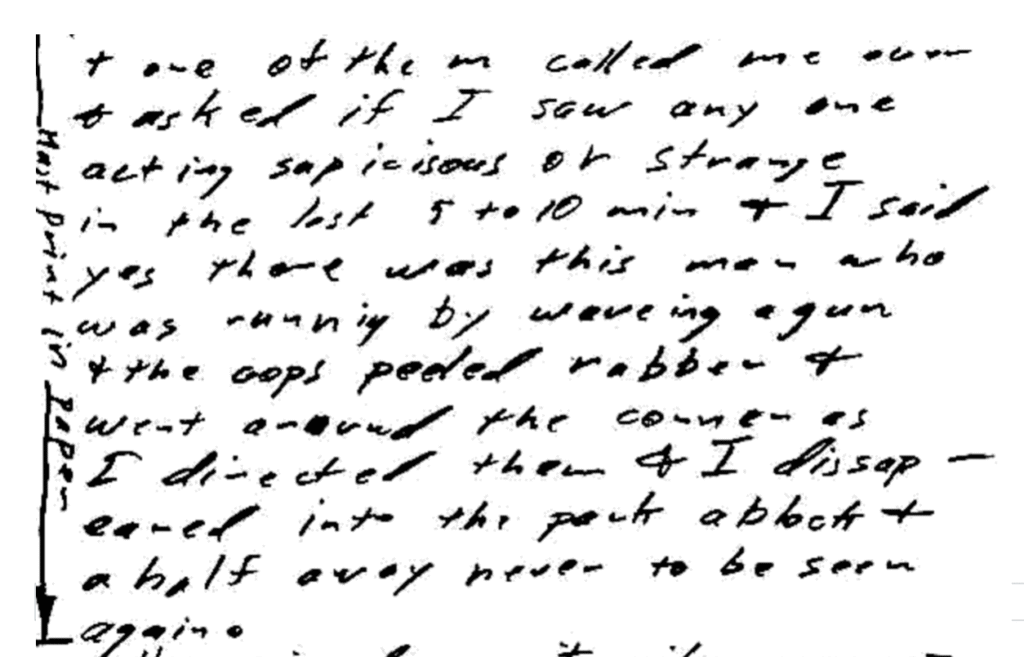 + one of the m called me over
+ asked if I saw any one
acting sapicisous or strange
in the last 5 to 10 min + I said
yes there was this man who
was runnig by waveing a gun
+ the cops peeled rubber +
went around the corner as
I directed them + I dissap —
eared into the park a block +
a half away never to be seen
again.
Must print in paper